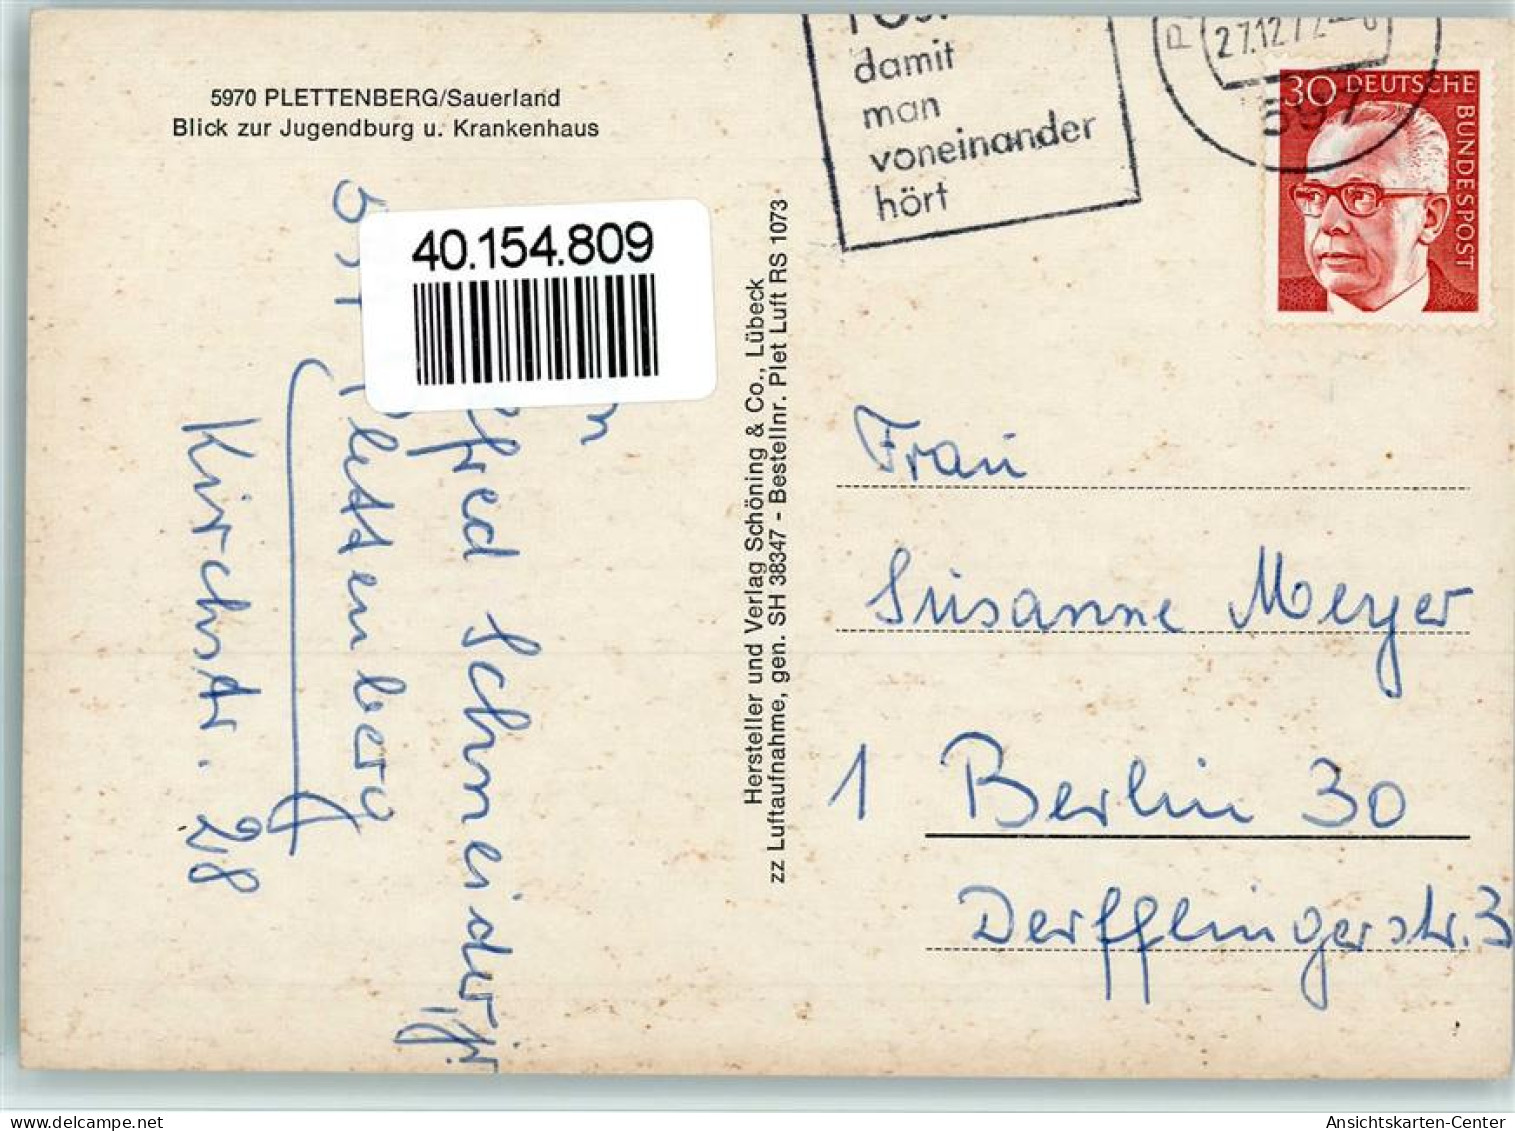 5970 PLETTENBERG/Sauerland
Blick zur Jugendburg u. Krankenhaus
damit
man
voneinander
hört
27.12.72
597
30 DEUTSCHE
BUNDESPOST
40.154.809
Schneider jr.
597 Plettenberg
Kirchstr. 28
Hersteller und Verlag Schöning & Co., Lübeck
zz Luftaufnahme, gen. SH 38347 - Bestellnr. Plet Luft RS 1073
Frau
Susanne Meyer
1 Berlin 30
Derfflingerstr. 3
delcampe.net
Ansichtskarten-Center